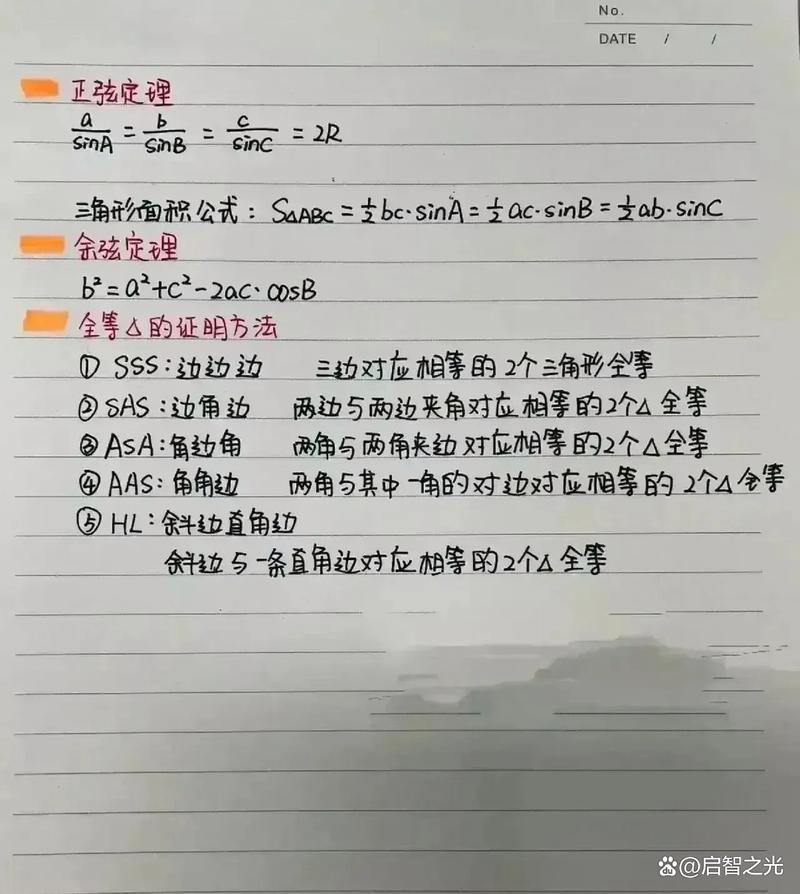 No.
DATE / /
正弦定理
a/sinA = b/sinB = c/sinC = 2R
三角形面积公式: S△ABC = ½bc·sinA = ½ac·sinB = ½ab·sinC
余弦定理
b²=a²+c²-2ac·cosB
全等△的证明方法
① SSS:边边边 三边对应相等的2个三角形全等
② SAS:边角边 两边与两边夹角对应相等的2个△全等
③ ASA:角边角 两角与两角夹边对应相等的2个△全等
④ AAS:角角边 两角与其中一角的对边对应相等的2个△全等
⑤ HL:斜边直角边
斜边与一条直角边对应相等的2个△全等
@启智之光